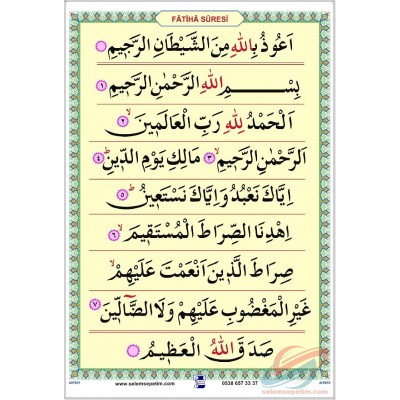 FÂTİHÂ SÛRESİ
اَعُوذُ بِاللّٰهِ مِنَ الشَّيْطَانِ الرَّجِيمِ
بِسْمِ اللّٰهِ الرَّحْمٰنِ الرَّحِيمِ ١
اَلْحَمْدُ لِلّٰهِ رَبِّ الْعَالَمِينَۙ ٢
اَلرَّحْمٰنِ الرَّحِيمِۙ ٣ مَالِكِ يَوْمِ الدِّينِۜ ٤
اِيَّاكَ نَعْبُدُ وَاِيَّاكَ نَسْتَعِينُۜ ٥
اِهْدِنَا الصِّرَاطَ الْمُسْتَقِيمَۙ ٦
صِرَاطَ الَّذِينَ اَنْعَمْتَ عَلَيْهِمْۙ
غَيْرِ الْمَغْضُوبِ عَلَيْهِمْ وَلَا الضَّٓالِّينَ ٧
صَدَقَ اللّٰهُ الْعَظِيمُ
www.selemsepetim.com 0538 657 33 37
selemsepetim.com